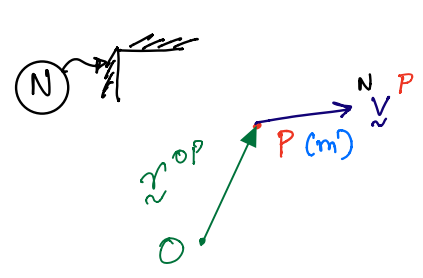 N
N v P
P (m)
r OP
O